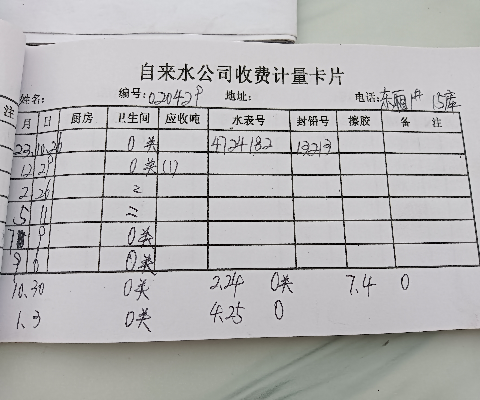 自来水公司收费计量卡片
姓名: 编号: 020429 地址: 电话: 东厢 # 15库
注 月 日 厨房 卫生间 应收吨 水表号 封铅号 橡胶 备 注
23.10.26 0类 4724182 13213
12 29 0类 (1)
2 26 =
5 11 =
9 0类
9 6 0类
10.30 0类 2.24 0类 7.4 0
1.3 0类 4.25 0